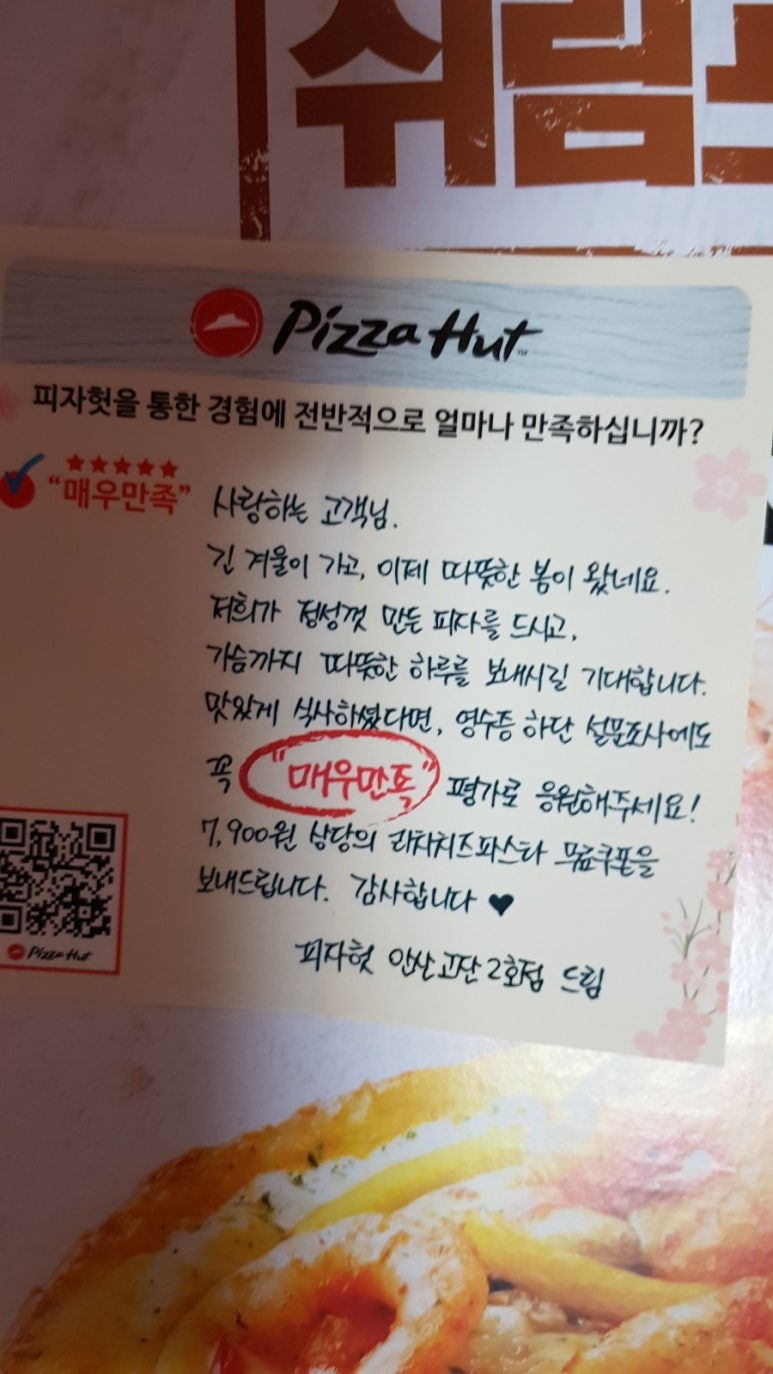 쉬림프
Pizza Hut
피자헛을 통한 경험에 전반적으로 얼마나 만족하십니까?
"매우만족"
사랑하는 고객님.
긴 겨울이 가고, 이제 따뜻한 봄이 왔네요.
저희가 정성껏 만든 피자를 드시고,
가슴까지 따뜻한 하루를 보내시길 기대합니다.
맛있게 식사하셨다면, 영수증 하단 설문조사에도
꼭 "매우만족" 평가로 응원해주세요!
7,900원 상당의 리치치즈파스타 무료쿠폰을
보내드립니다. 감사합니다 ♥
피자헛 안산고잔2호점 드림
Pizza Hut